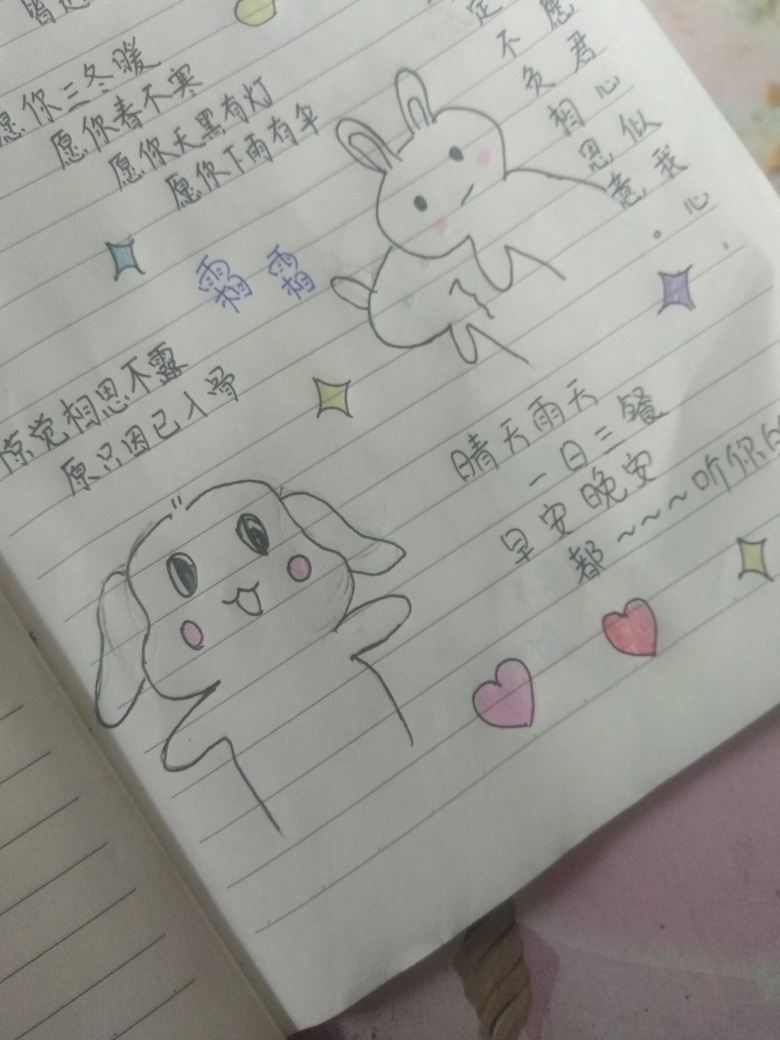 愿你三冬暖
愿你春不寒
愿你天黑有灯
愿你下雨有伞
愿君心似我心,
定不负相思意。
霜霜
原觉相思不露
原只因已入骨
晴天雨天
一日三餐
早安晚安
都~~~听你的